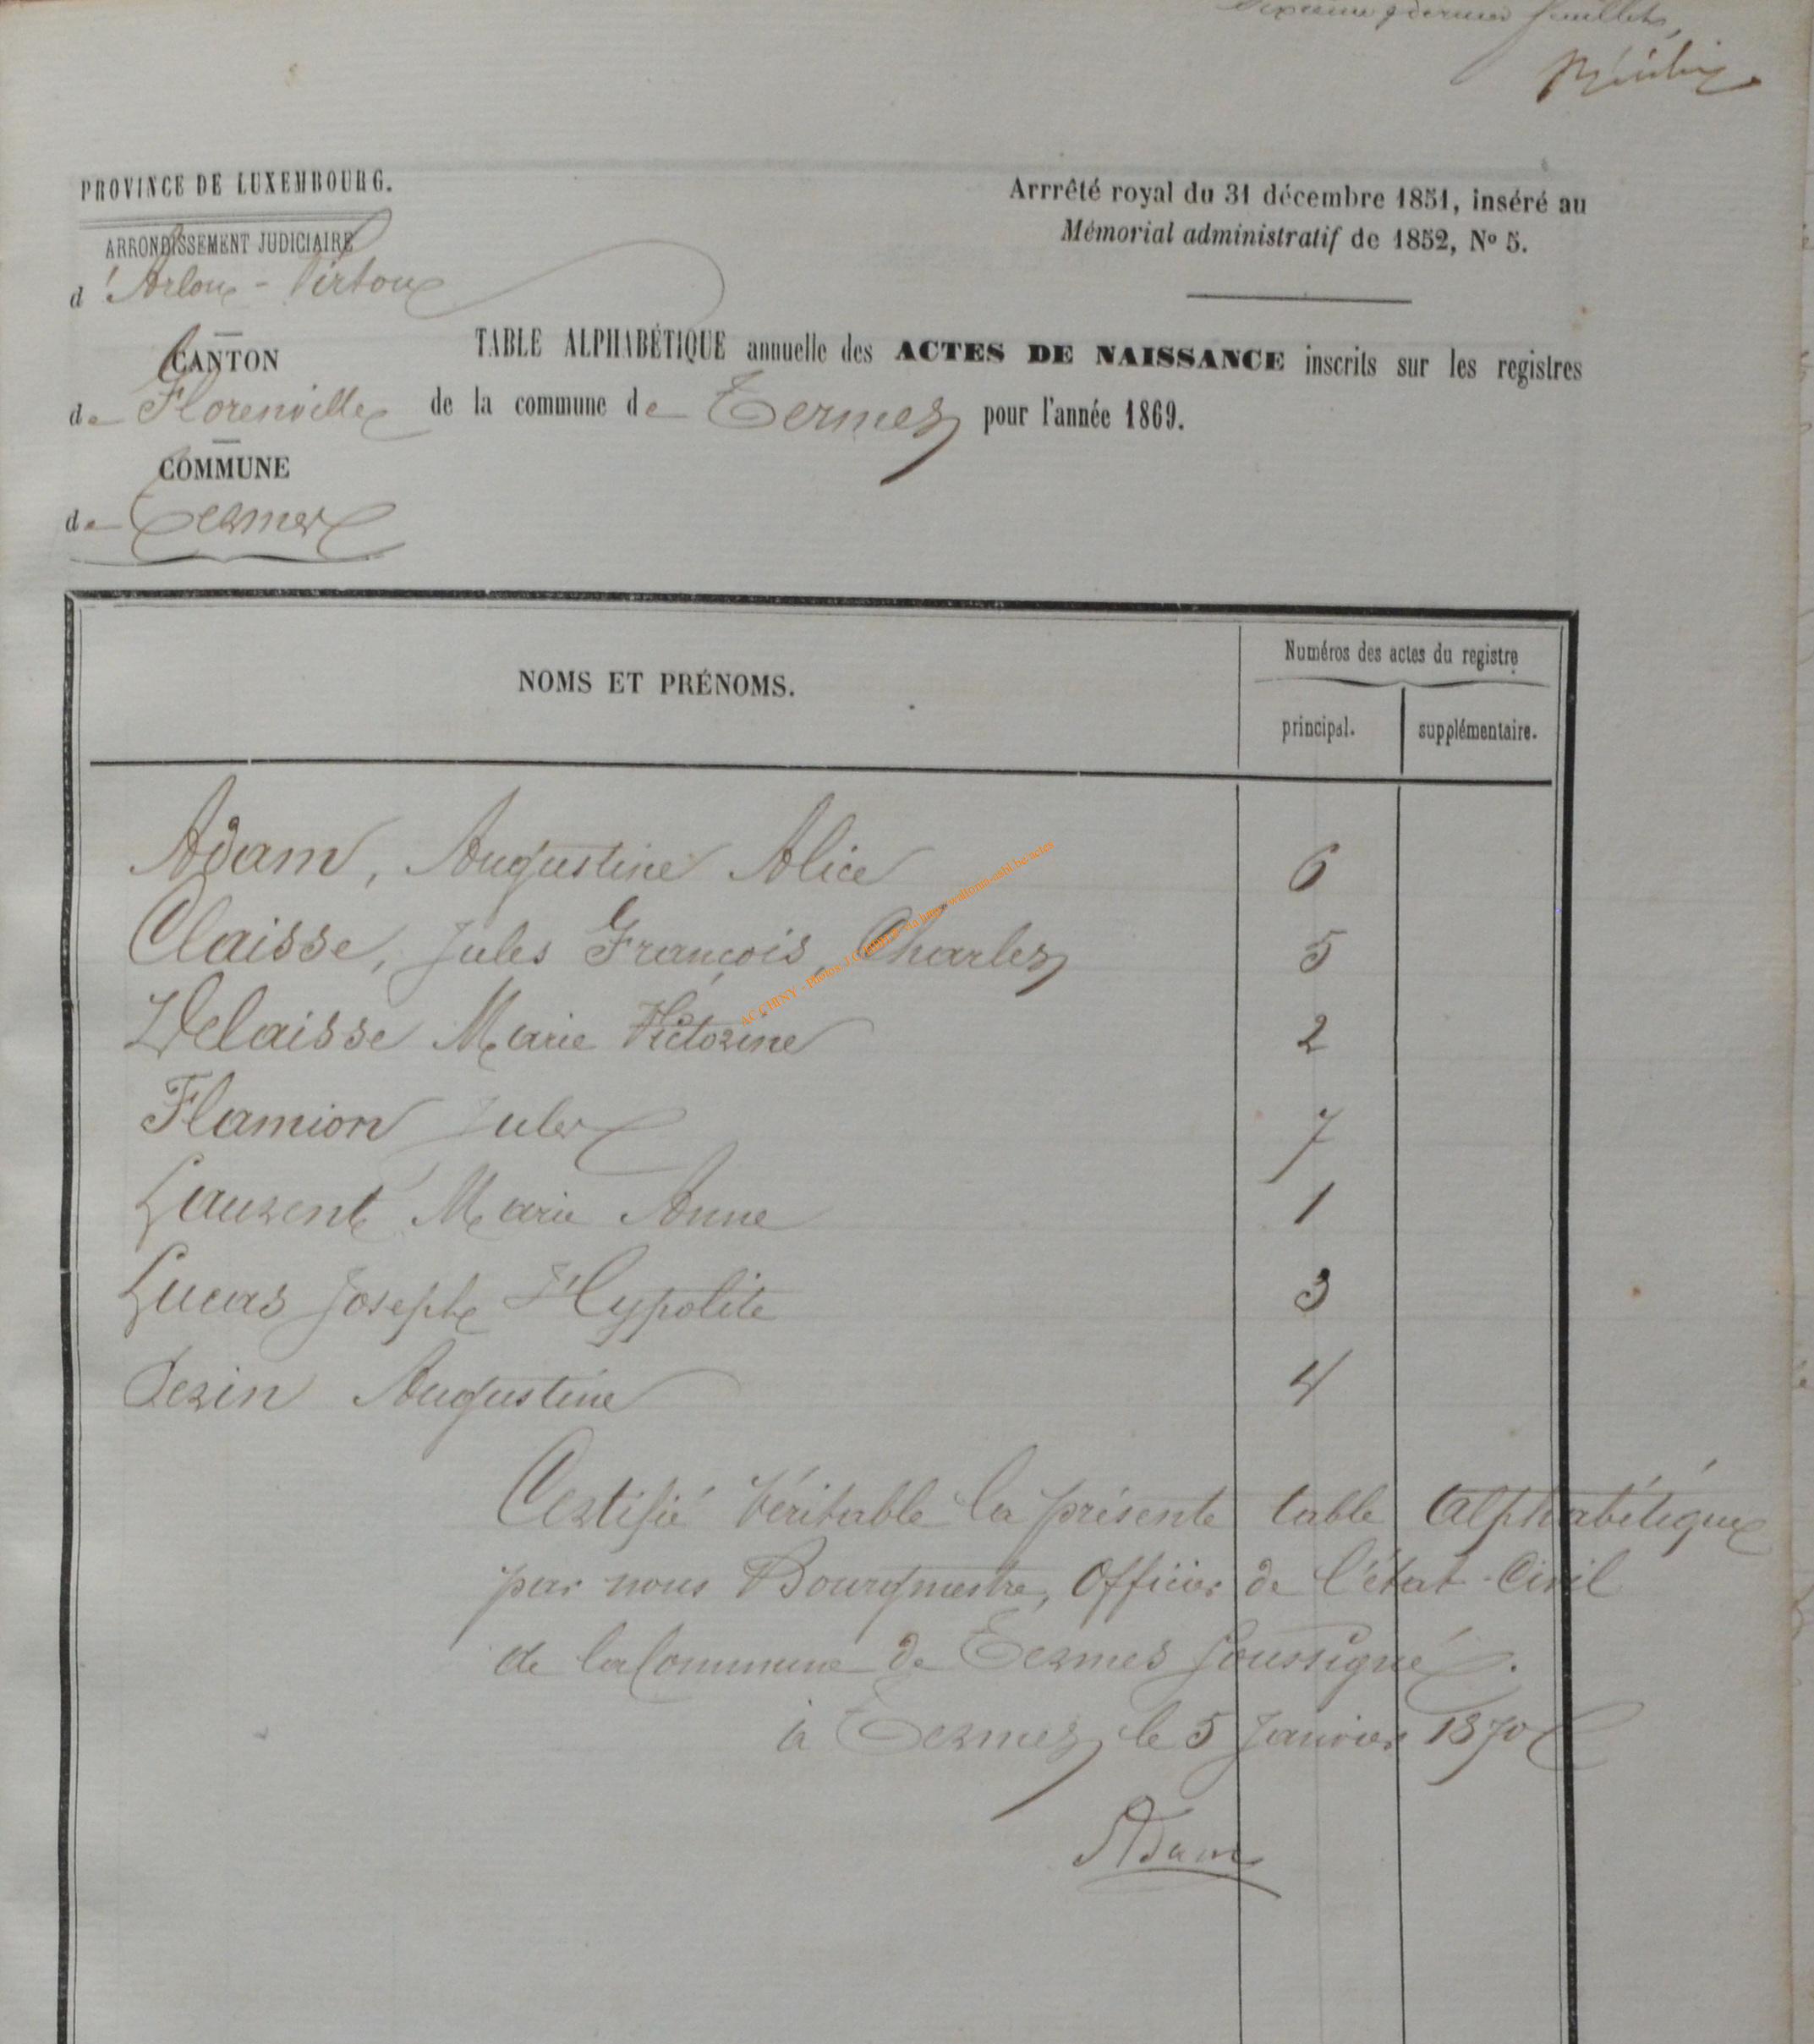 Dixième & dernier feuillet,
PROVINCE DE LUXEMBOURG.
Arrrêté royal du 31 décembre 1851, inséré au
Mémorial administratif de 1852, No 5.
ARRONDISSEMENT JUDICIAIRE
d'Arlon - Virton
CANTON
de Florenville
TABLE ALPHABÉTIQUE annuelle des ACTES DE NAISSANCE inscrits sur les registres
de la commune de Termes pour l'année 1869.
COMMUNE
de Termes
NOMS ET PRÉNOMS.
Numéros des actes du registre
principal. supplémentaire.
Adam, Augustine Alice 6
Claisse, Jules François, Charles 5
Delaisse Marie Victorine 2
Flamion Jules 7
Laurent Marie Anne 1
Lucas Joseph Hypolite 3
Pezin Augustine 4
Certifié véritable la présente table alphabétique
par nous Bourgmestre, Officier de l'état-Civil
de la Commune de Termes Soussigné.
à Termes, le 5 Janvier 1870
Adam